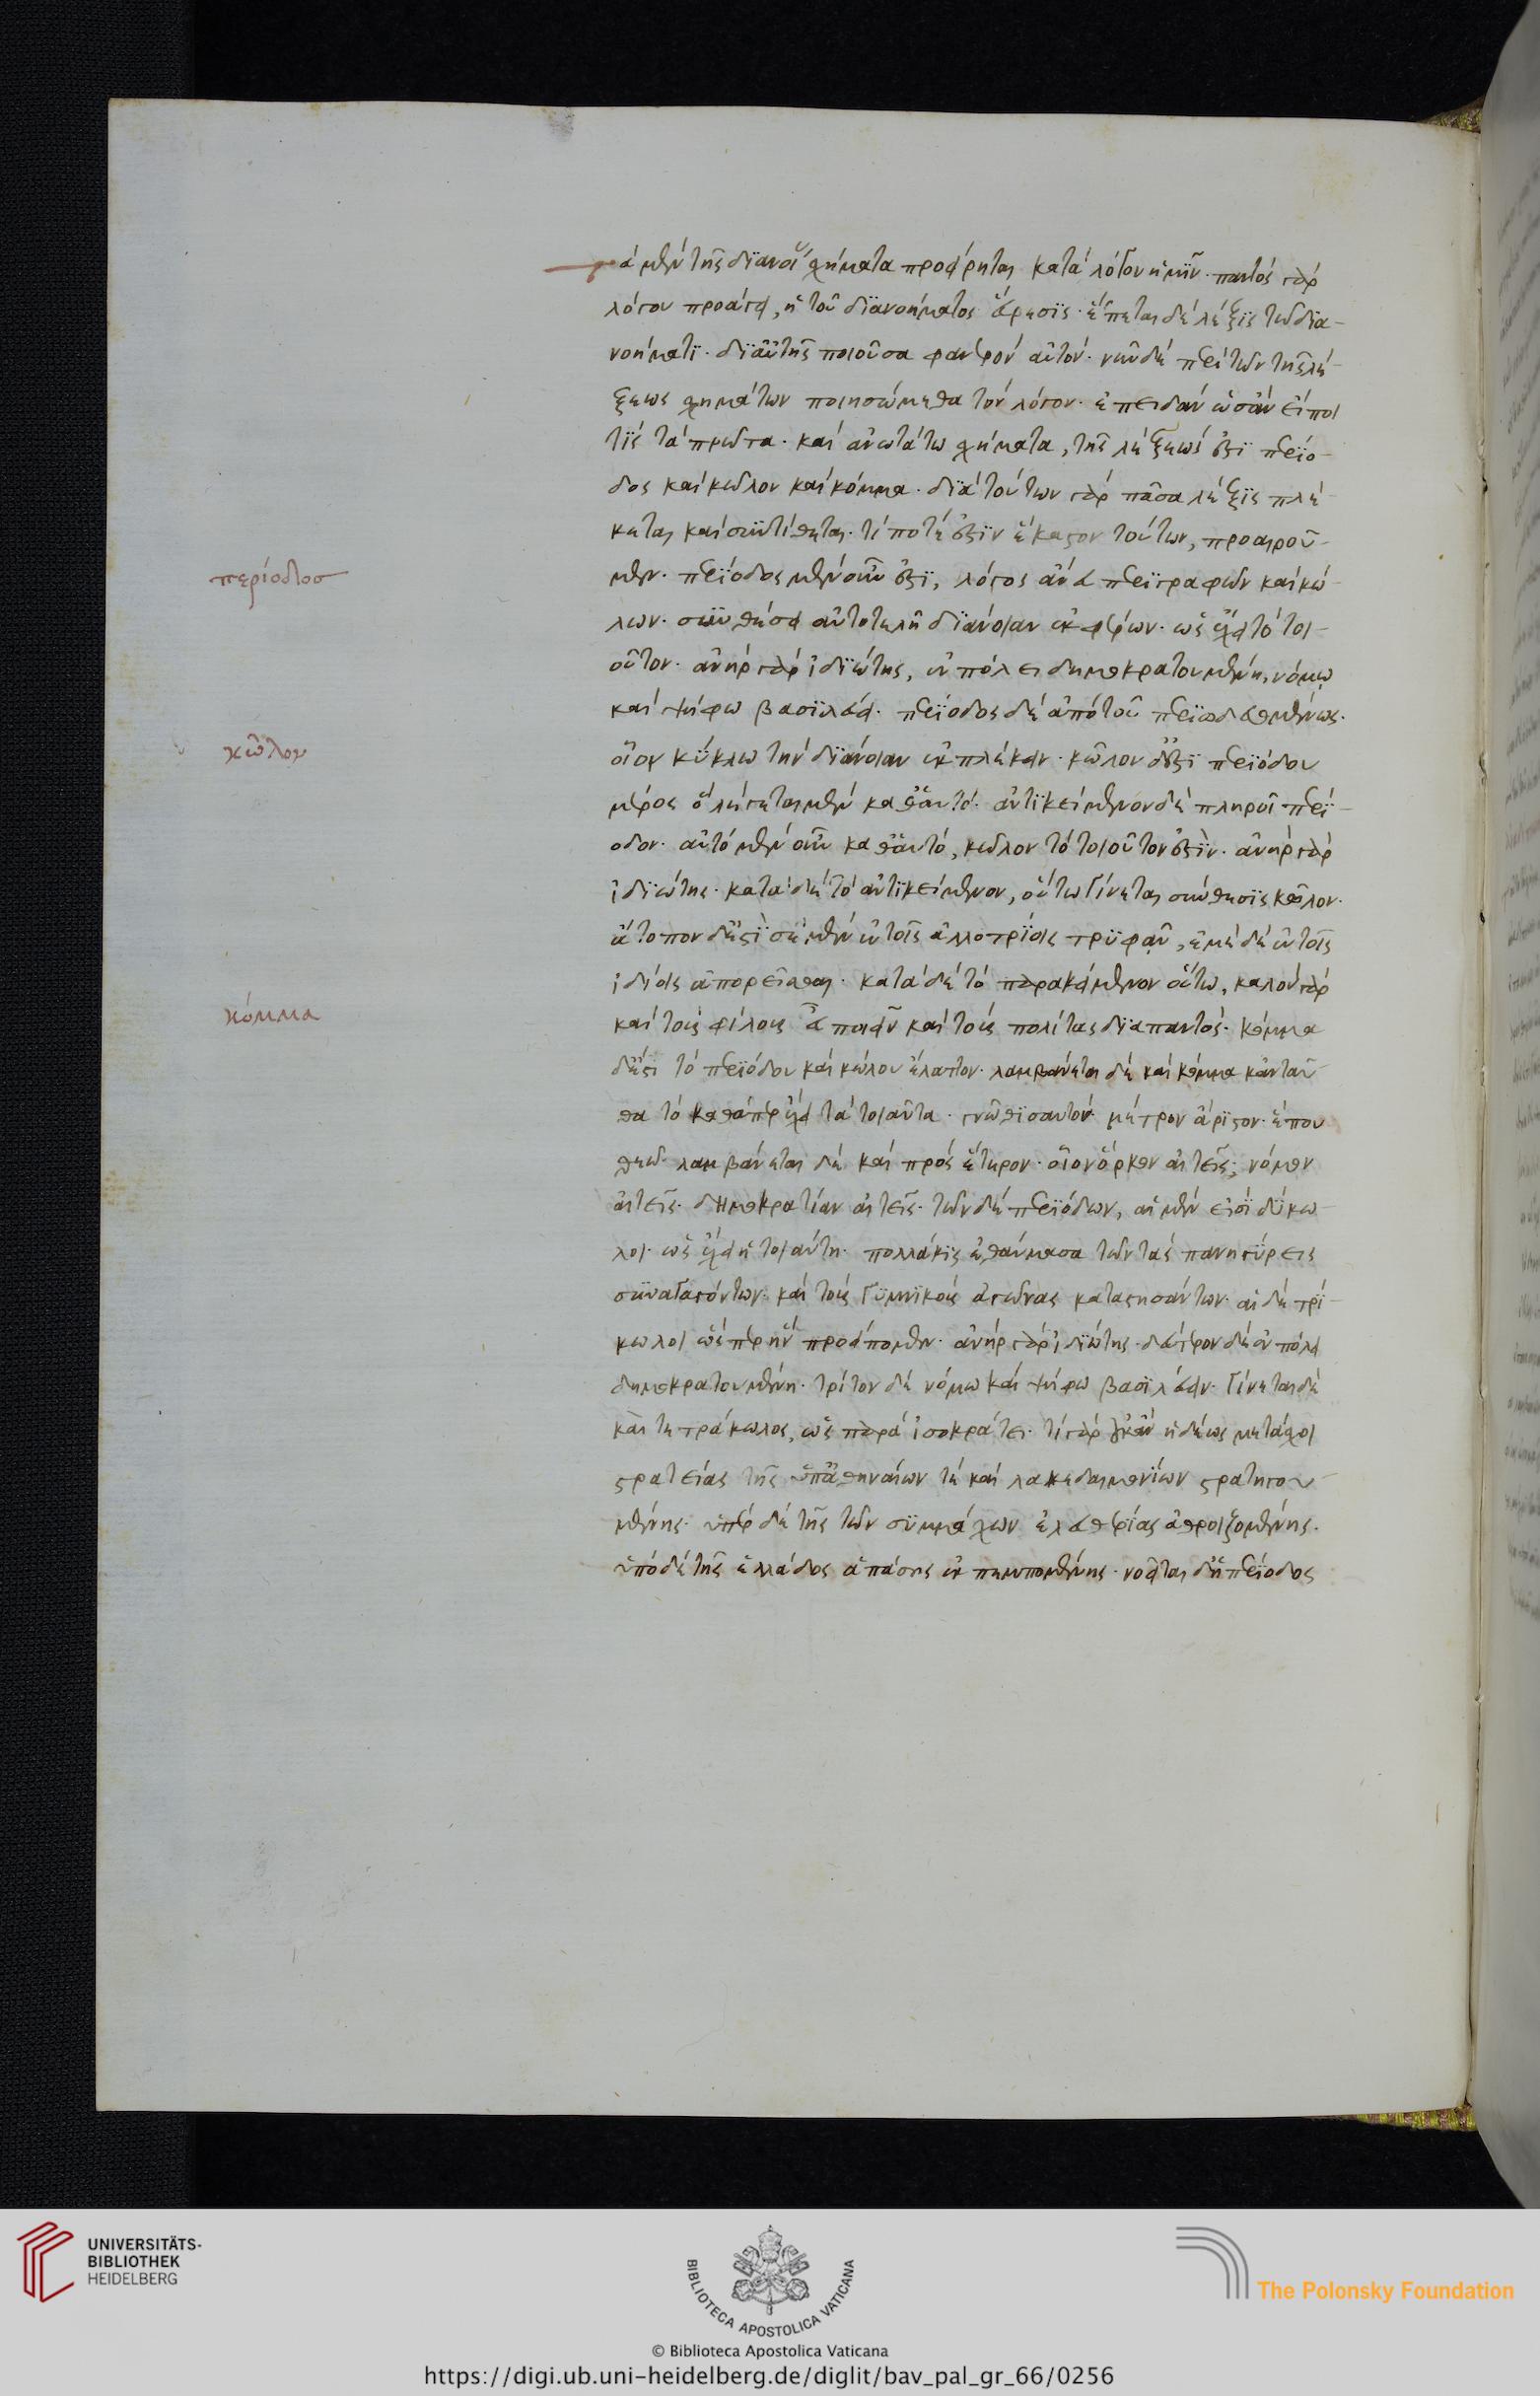 τὰ μὲν τῆς διανοίας σχήματα προφέρεται κατὰ λόγον ἡμῖν. παντὸς γὰρ
λόγου προάγει, ἡ τοῦ διανοήματος εὕρεσις. ἕπεται δὲ λέξις τῶ δια-
νοήματι. δι αὐτῆς ποιοῦσα φανερὸν αὐτόν. νῦν δὲ περὶ τῶν τῆς λέ-
ξεως σχημάτων ποιησώμεθα τὸν λόγον. ἐπειδὰν ὡς ἂν εἴποι
τίς τὰ πρῶτα. καὶ ἀνωτάτω σχήματα, τῆς λέξεώς ἐστι περίο-
δος καὶ κῶλον καὶ κόμμα. διὰ τούτων γὰρ πᾶσα λέξις πλέ-
κεται καὶ συντίθεται. τί ποτέ ἐστιν ἕκαστον τούτων, προαιροῦ-
μεν. περίοδος μὲν οὖν ἐστι, λόγος ἐν εὐπεριγράφων καὶ κώ-
λων. συνθέσει αὐτοτελῆ διάνοιαν ἐκφέρων. ὡς ἔχει τὸ τοι-
οῦτον. ἀνὴρ γὰρ ἰδιώτης, ἐν πόλει δημοκρατουμένη, νόμω
καὶ ψήφω βασιλεύει. περίοδος δὲ ἀπὸ τοῦ περιωδευμένως.
οἷον κύκλω τὴν διάνοιαν ἐκπλέκειν. κῶλον δ' ἐστι περιόδου
μέρος ὃ λέγεται μὲν καθ' ἑαυτό. ἀντικείμενον δὲ πληροῖ περί-
οδον. αὐτὸ μὲν οὖν καθ' ἑαυτό, κῶλον τὸ τοιοῦτον ἐστίν. ἀνὴρ γὰρ
ἰδιώτης. κατὰ δὲ τὸ ἀντικείμενον, οὕτω γίνεται σύνθεσις κῶλον.
ἄτοπον δ' ἐστὶ σὲ μὲν ἐν τοῖς ἀλλοτρίοις τρυφᾶν, ἐμὲ δὲ ἐν τοῖς
ἰδίοις ἀπορεῖσθαι. κατὰ δὲ τὸ παρακείμενον οὕτω, καλὸν γὰρ
καὶ τοὺς φίλους εὖ ποιεῖν καὶ τοὺς πολίτας διαπαντός. κόμμα
δ' ἐστι τὸ περιόδου καὶ κώλου ἔλαττον. λαμβάνεται δὲ καὶ κόμμα κἀνταῦ-
θα τὸ καθάπερ ἔχει τὰ τοιαῦτα. γνῶθι σαυτόν. μέτρον ἄριστον. ἕπου
θεῶ. λαμβάνεται δὲ καὶ πρὸς ἕτερον. οἷον ὅρκον αἰτεῖς, νόμον
αἰτεῖς. δημοκρατίαν αἰτεῖς. τῶν δὲ περιόδων, αἱ μὲν εἰσὶ δίκω-
λοι. ὡς ἔχει ἡ τοιαύτη. πολλάκις ἐθαύμασα τῶν τὰς πανηγύρεις
συναγαγόντων. καὶ τοὺς γυμνικοὺς ἀγῶνας καταστησάντων. αἱ δὲ τρί-
κωλοι ὥσπερ ἣν προείπομεν. ἀνὴρ γὰρ ἰδιώτης. δεύτερον δὲ ἐν πόλει
δημοκρατουμένη. τρίτον δὲ νόμω καὶ ψήφω βασιλεύειν. γίνεται δὲ
καὶ τετράκωλος, ὡς παρὰ ἰσοκράτει. τίς γὰρ οὐκ ἂν ἡδέως μετάσχοι
στρατείας τῆς ὑπ' ἀθηναίων τὲ καὶ λακεδαιμονίων στρατηγου-
μένης. ὑπὲρ δὲ τῆς τῶν συμμάχων ἐλευθερίας ἀθροιζομένης.
ὑπὸ δὲ τῆς ἑλλάδος ἁπάσης ἐκπεμπομένης. νοεῖται δ' ἡ περίοδος
περίοδος
κῶλον
κόμμα
UNIVERSITÄTS-
BIBLIOTHEK
HEIDELBERG
BIBLIOTECA APOSTOLICA VATICANA
© Biblioteca Apostolica Vaticana
The Polonsky Foundation
https://digi.ub.uni-heidelberg.de/diglit/bav_pal_gr_66/0256